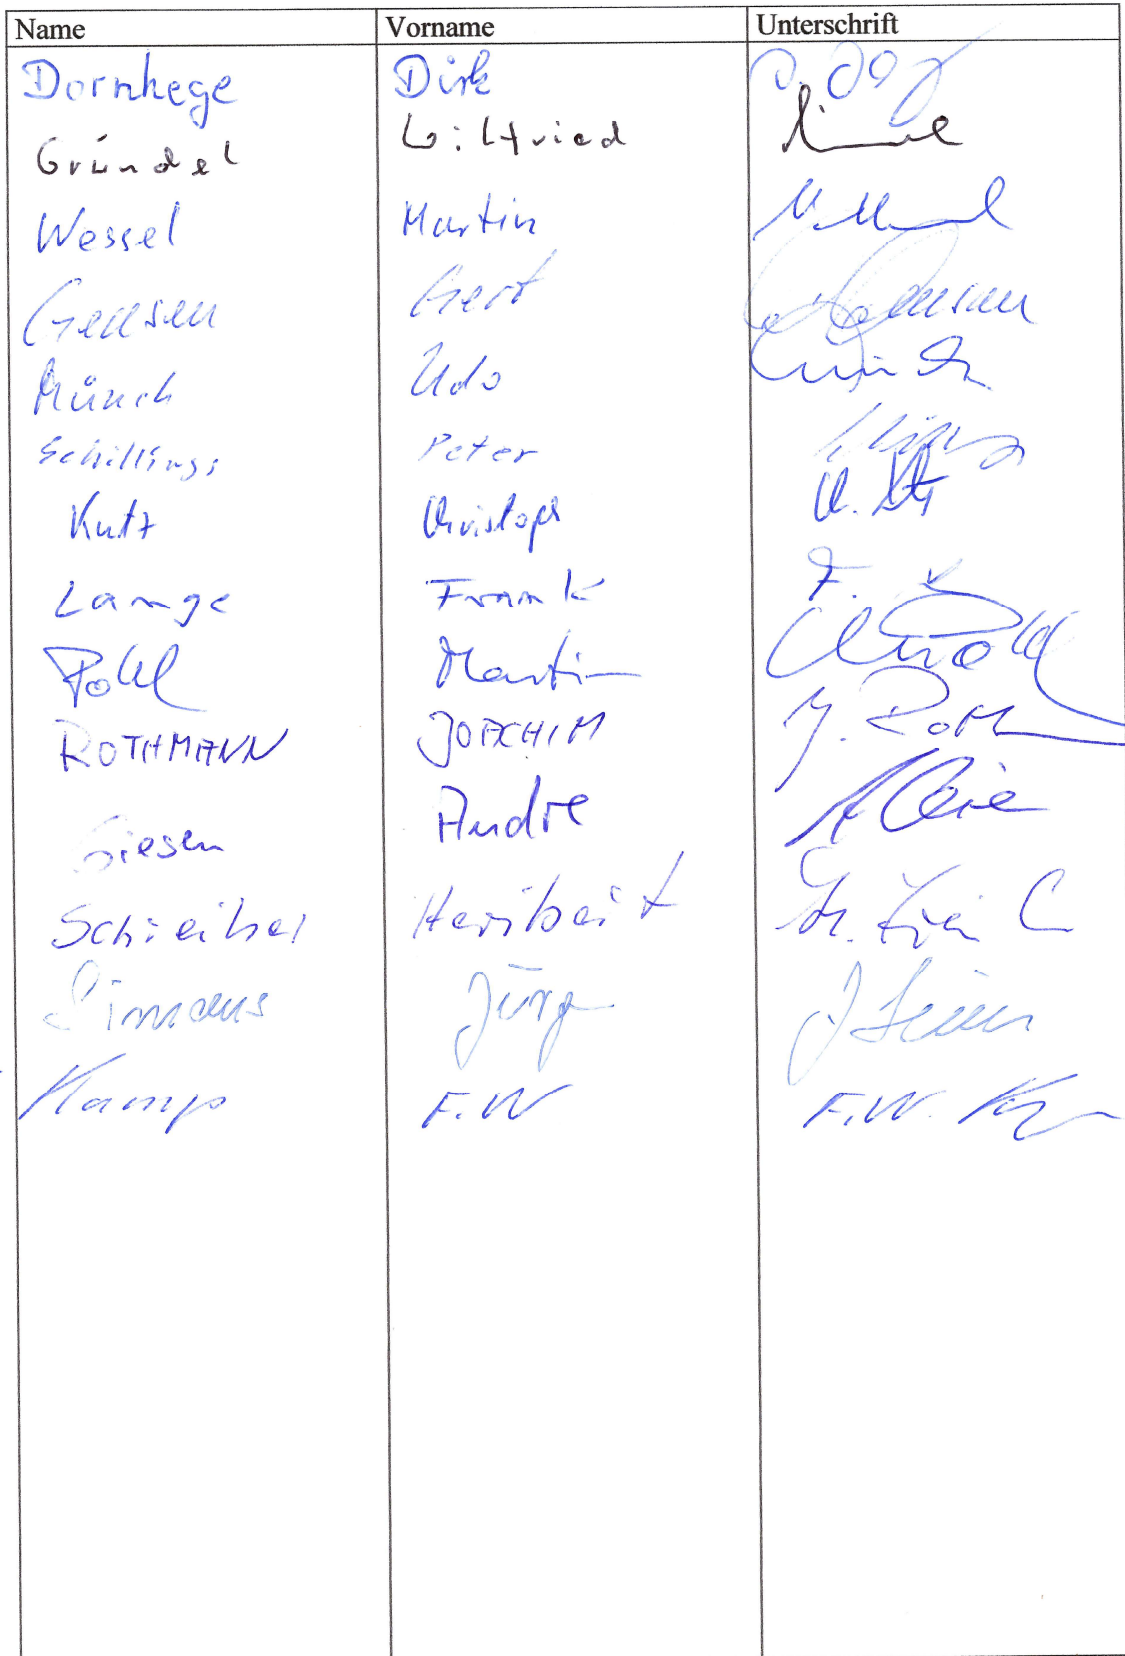 Name Vorname Unterschrift
Dornhege Dirk
Gründel Wilfried
Wessel Martin
Gensen Gert
Münch Udo
Schillings Peter
Kutz Christoph
Lange Frank F.
Pohl Martin
ROTHMANN JOACHIM J. Roth
Giesen Andre
Schreiber Heribert
Simons Jürg
Kamp F.W F.W.